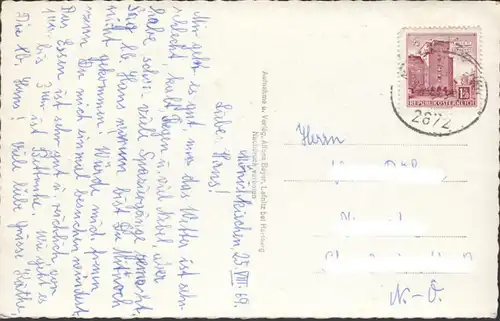 Mönichkirchen, 25.VIII.69.
Liebe Hans!
Mir geht es gut, nur das Wetter ist sehr
schlecht, kalt Regen u. viel Nebel, aber
habe schon viele Spaziergänge gemacht.
Sag lb. Hans warum bist Du Mittwoch
nicht gekommen? Würde mich freuen
wenn Du mich einmal besuchen würdest.
Das Essen ist sehr gut u. reichlich, von
bis ist Bettruhe. Wie geht es
Dir lb. Hans? Viele liebe Grüsse Käthe.
Aufnahme u. Verlag: Alfons Bayer, Lafnitz bei Hartberg
Nachdruck verboten
REPUBLIK ÖSTERREICH
2872
Herrn
N.-Ö.